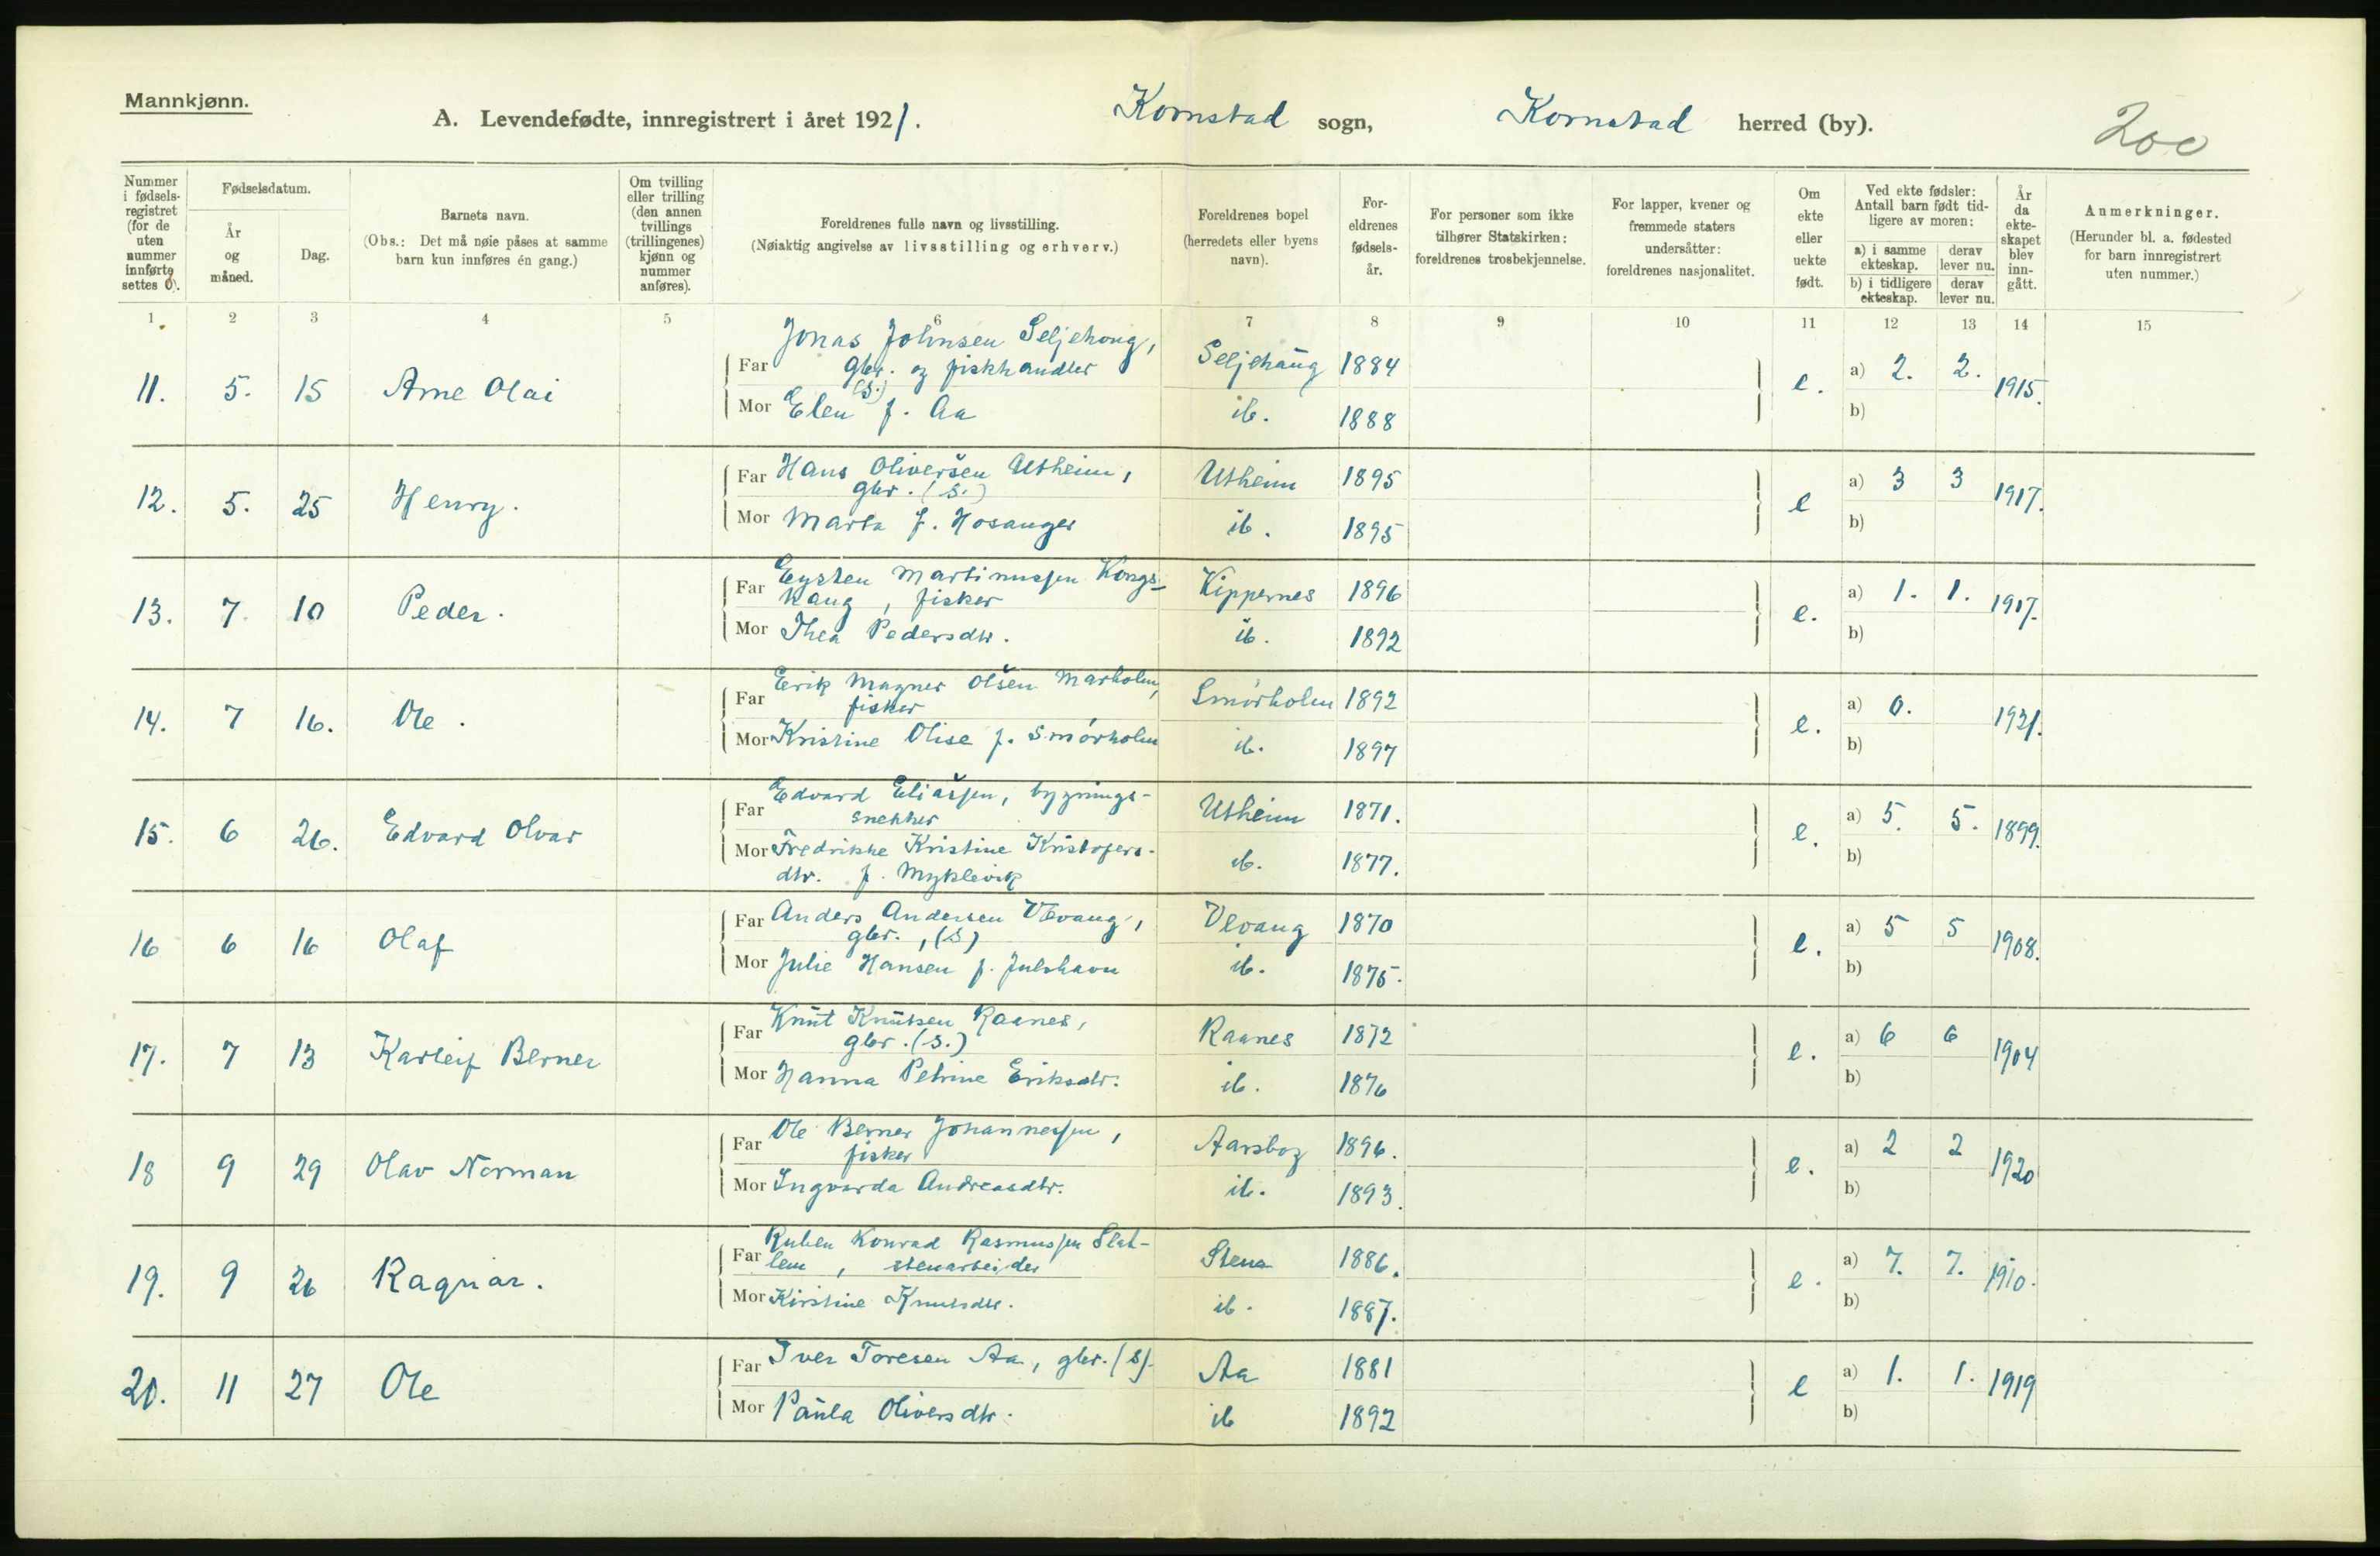 Mannkjønn.
A. Levendefødte, innregistrert i året 1921. Kornstad sogn, Kornstad herred (by). 200
Nummer i fødselsregistret (for de uten nummer innførte settes 0).
Fødselsdatum.
År og måned.
Dag.
Barnets navn.
(Obs.: Det må nøie påses at samme barn kun innføres én gang.)
Om tvilling eller trilling (den annen tvillings (trillingenes) kjønn og nummer anføres).
Foreldrenes fulle navn og livsstilling.
(Nøiaktig angivelse av livsstilling og erhverv.)
Foreldrenes bopel (herredets eller byens navn).
Foreldrenes fødselsår.
For personer som ikke tilhører Statskirken: foreldrenes trosbekjennelse.
For lapper, kvener og fremmede staters undersåtter: foreldrenes nasjonalitet.
Om ekte eller uekte født.
Ved ekte fødsler: Antall barn født tidligere av moren:
a) i samme ekteskap. derav lever nu.
b) i tidligere ekteskap. derav lever nu.
År da ekteskapet blev inngått.
Anmerkninger.
(Herunder bl. a. fødested for barn innregistrert uten nummer.)
1 2 3 4 5 6 7 8 9 10 11 12 13 14 15
Jonas Johnsen Seljehoug,
Far gbr. og fiskhandler Seljehaug 1884
(S.)
11. 5. 15 Arne Olai e. a) 2. 2. 1915.
Mor Elen f. Aa ib. 1888 b)
Far Hans Oliversen Utheim, Utheim 1895
gbr. (S.)
12. 5. 25 Henry. e a) 3 3 1917.
Mor Marta f. Hosanger ib. 1895 b)
Eysten Martinussen Kongs-
Far haug, fisker Kippernes 1896
13. 7. 10 Peder. e. a) 1. 1. 1917.
Mor Thea Pedersdtr. ib. 1892 b)
Erik Magner Olsen Marholm,
Far fisker Smørholm 1892
14. 7 16. Ole. e. a) 0. 1921.
Mor Kristine Olise f. Smørholm ib. 1897 b)
Edvard Eliassen, bygnings-
Far snekker Utheim 1871.
15. 6 26. Edvard Olvar e. a) 5. 5. 1899.
Mor Fredrikke Kristine Kristofers-
dtr. f. Myklevik ib. 1877. b)
Far Anders Andersen Vevang, Vevang 1870
gbr., (S)
16 6 16 Olaf e. a) 5 5 1908.
Mor Julie Hansen f. Julshavn ib. 1875. b)
Knut Knutsen Raanes,
Far gbr. (S.) Raanes 1872
17. 7 13 Karleif Berner e. a) 6 6 1904
Mor Hanna Petrine Eriksdtr. ib. 1876 b)
Ole Berner Johannessen,
Far fisker Aarsbog 1896.
18 9 29 Olav Norman e. a) 2 2 1920
Mor Ingvarda Andreasdtr. ib. 1893. b)
Ruben Konrad Rasmussen Slat-
Far lem, stenarbeider Stene 1886.
19. 9 26 Ragnar. e. a) 7. 7. 1910.
Mor Kirstine Knutsdtr. ib. 1887. b)
Far Iver Toresen Aa, gbr. (S). Aa 1881
20. 11 27 Ole e a) 1. 1. 1919
Mor Paula Oliversdtr. ib 1892 b)